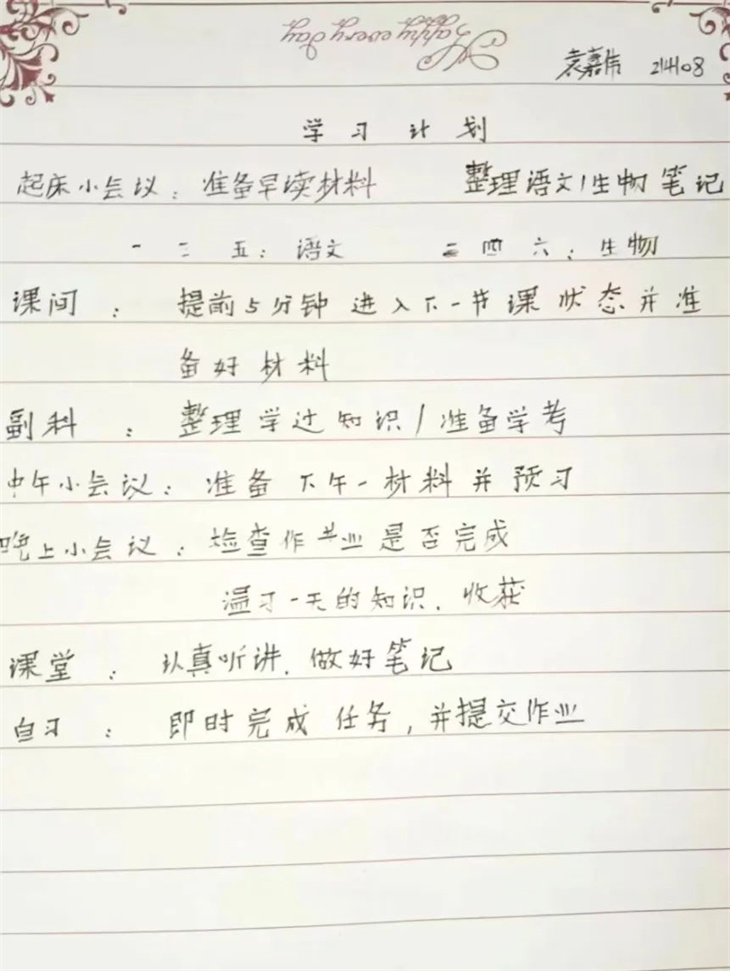 Happy every day
袁嘉伟 214108
学习计划
起床小会议：准备早读材料 整理语文/生物笔记
一 三 五：语文 二 四 六：生物
课间：提前5分钟进入下一节课状态并准
备好材料
副科：整理学过知识/准备学考
中午小会议：准备下午一材料并预习
晚上小会议：检查作业是否完成
温习一天的知识.收获
课堂：认真听讲.做好笔记
自习：即时完成任务，并提交作业